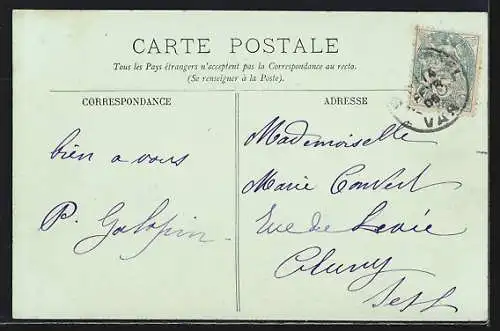 CARTE POSTALE
Tous les Pays étrangers n'acceptent pas la Correspondance au recto.
(Se renseigner à la Poste).
CORRESPONDANCE
ADRESSE
bien a vous
P. Galopin
Mademoiselle
Marie Convert
Rue de
Cluny
VAR
14